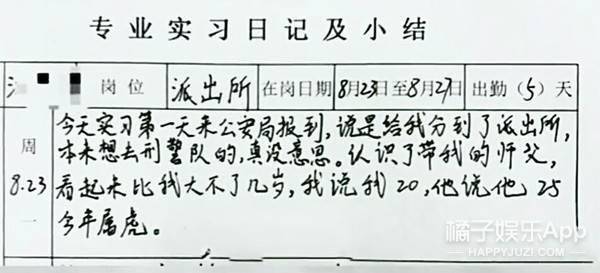 专业实习日记及小结
岗位 派出所 在岗日期 8月23日至8月27日 出勤(5)天
周
8.23
一
今天实习第一天来公安局报到,说是给我分到了派出所,
本来想去刑警队的,真没意思。认识了带我的师父,
看起来比我大不了几岁,我说我20,他说他25
今年属虎。
橘子娱乐App
HAPPYJUZI.COM